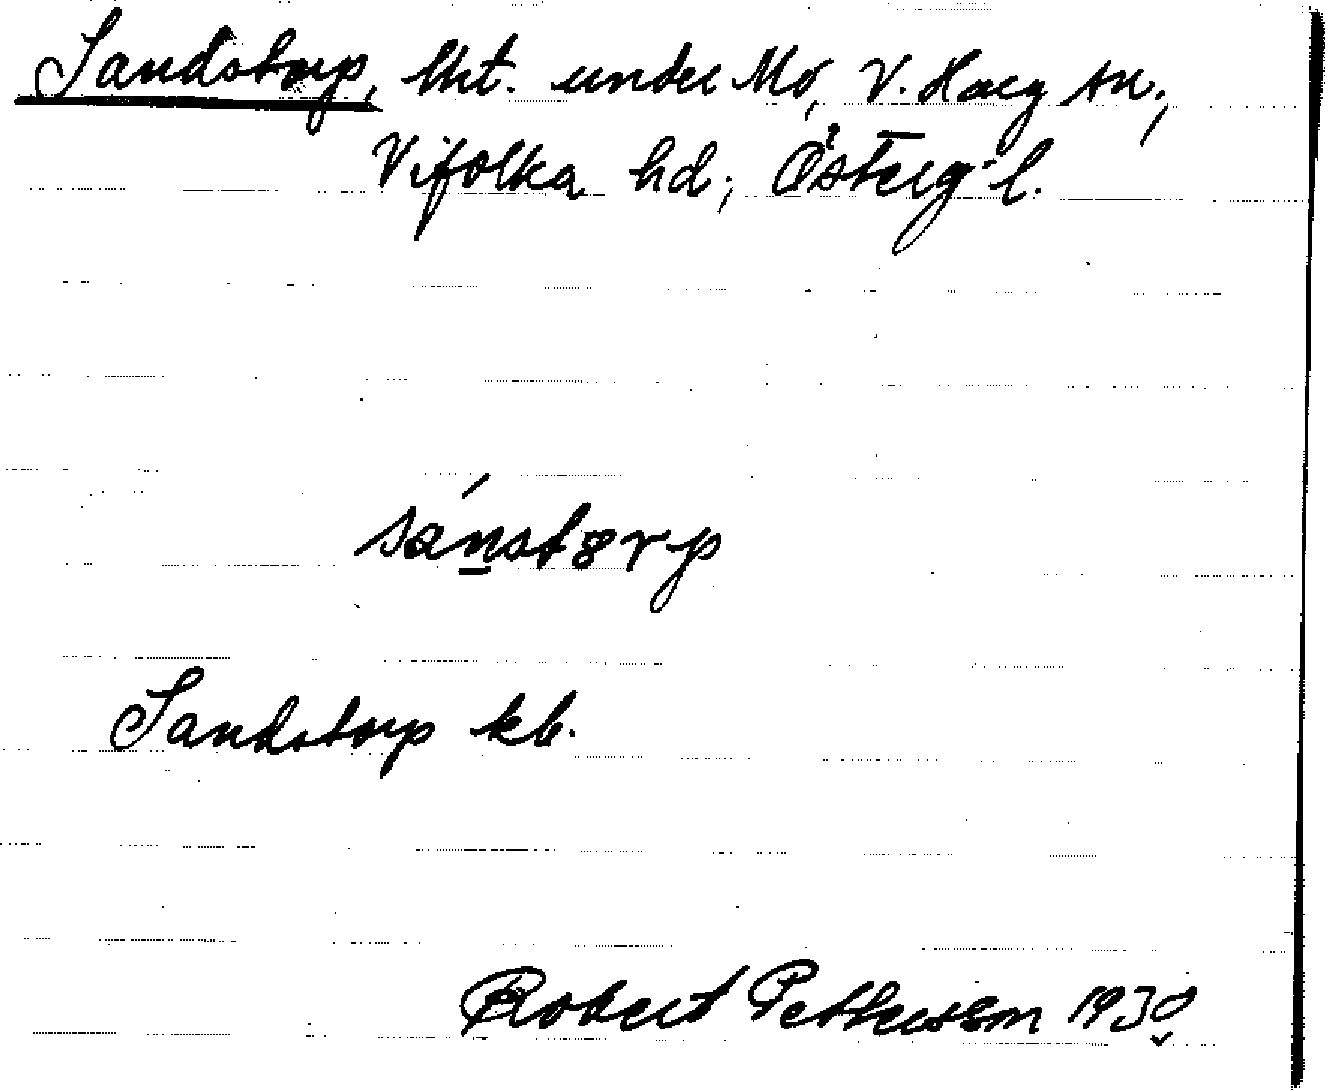 Sandstorp, lht. under Mo, V. Harg sn;
Vifolka hd; Österg:s l.
sánstɵrp
Sandstorp kb.
Robert Pettersson 1930